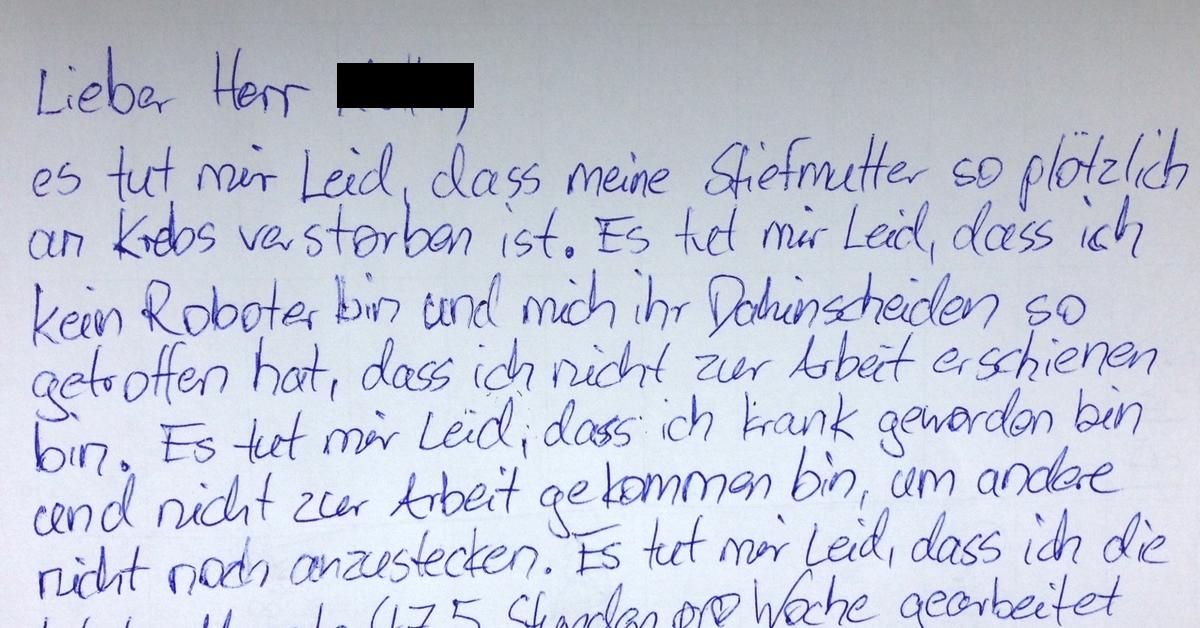 Lieber Herr
es tut mir Leid, dass meine Stiefmutter so plötzlich
an Krebs verstorben ist. Es tut mir Leid, dass ich
kein Roboter bin und mich ihr Dahinscheiden so
getroffen hat, dass ich nicht zur Arbeit erschienen
bin. Es tut mir Leid, dass ich krank geworden bin
und nicht zur Arbeit gekommen bin, um andere
nicht noch anzustecken. Es tut mir Leid, dass ich die
47,5 Stunden pro Woche gearbeitet